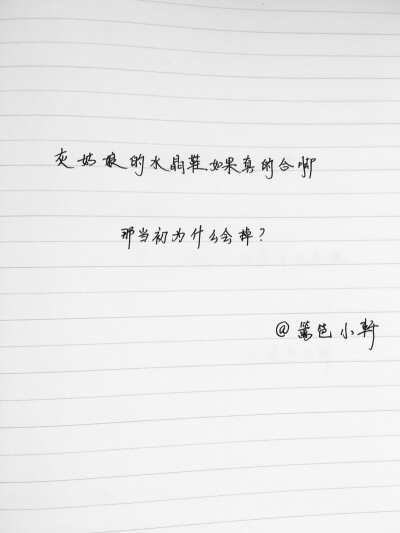 灰姑娘的水晶鞋如果真的合脚
那当初为什么会掉?
@篱笆小轩